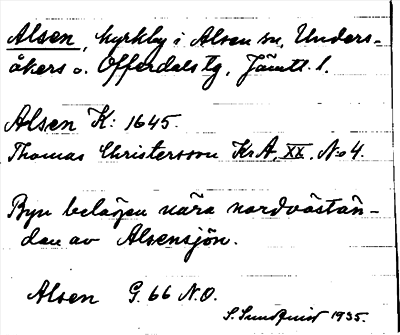 Alsen, kyrkby i Alsen sn, Unders-
åkers o. Offerdals tg, Jämtl. l.
Alsen K: 1645.
Thomas Christersson KrA, XX, No 4.
Byn belägen nära nordvästän-
dan av Alsensjön.
Alsen G. 66 N.O.
S. Sundquist 1935.